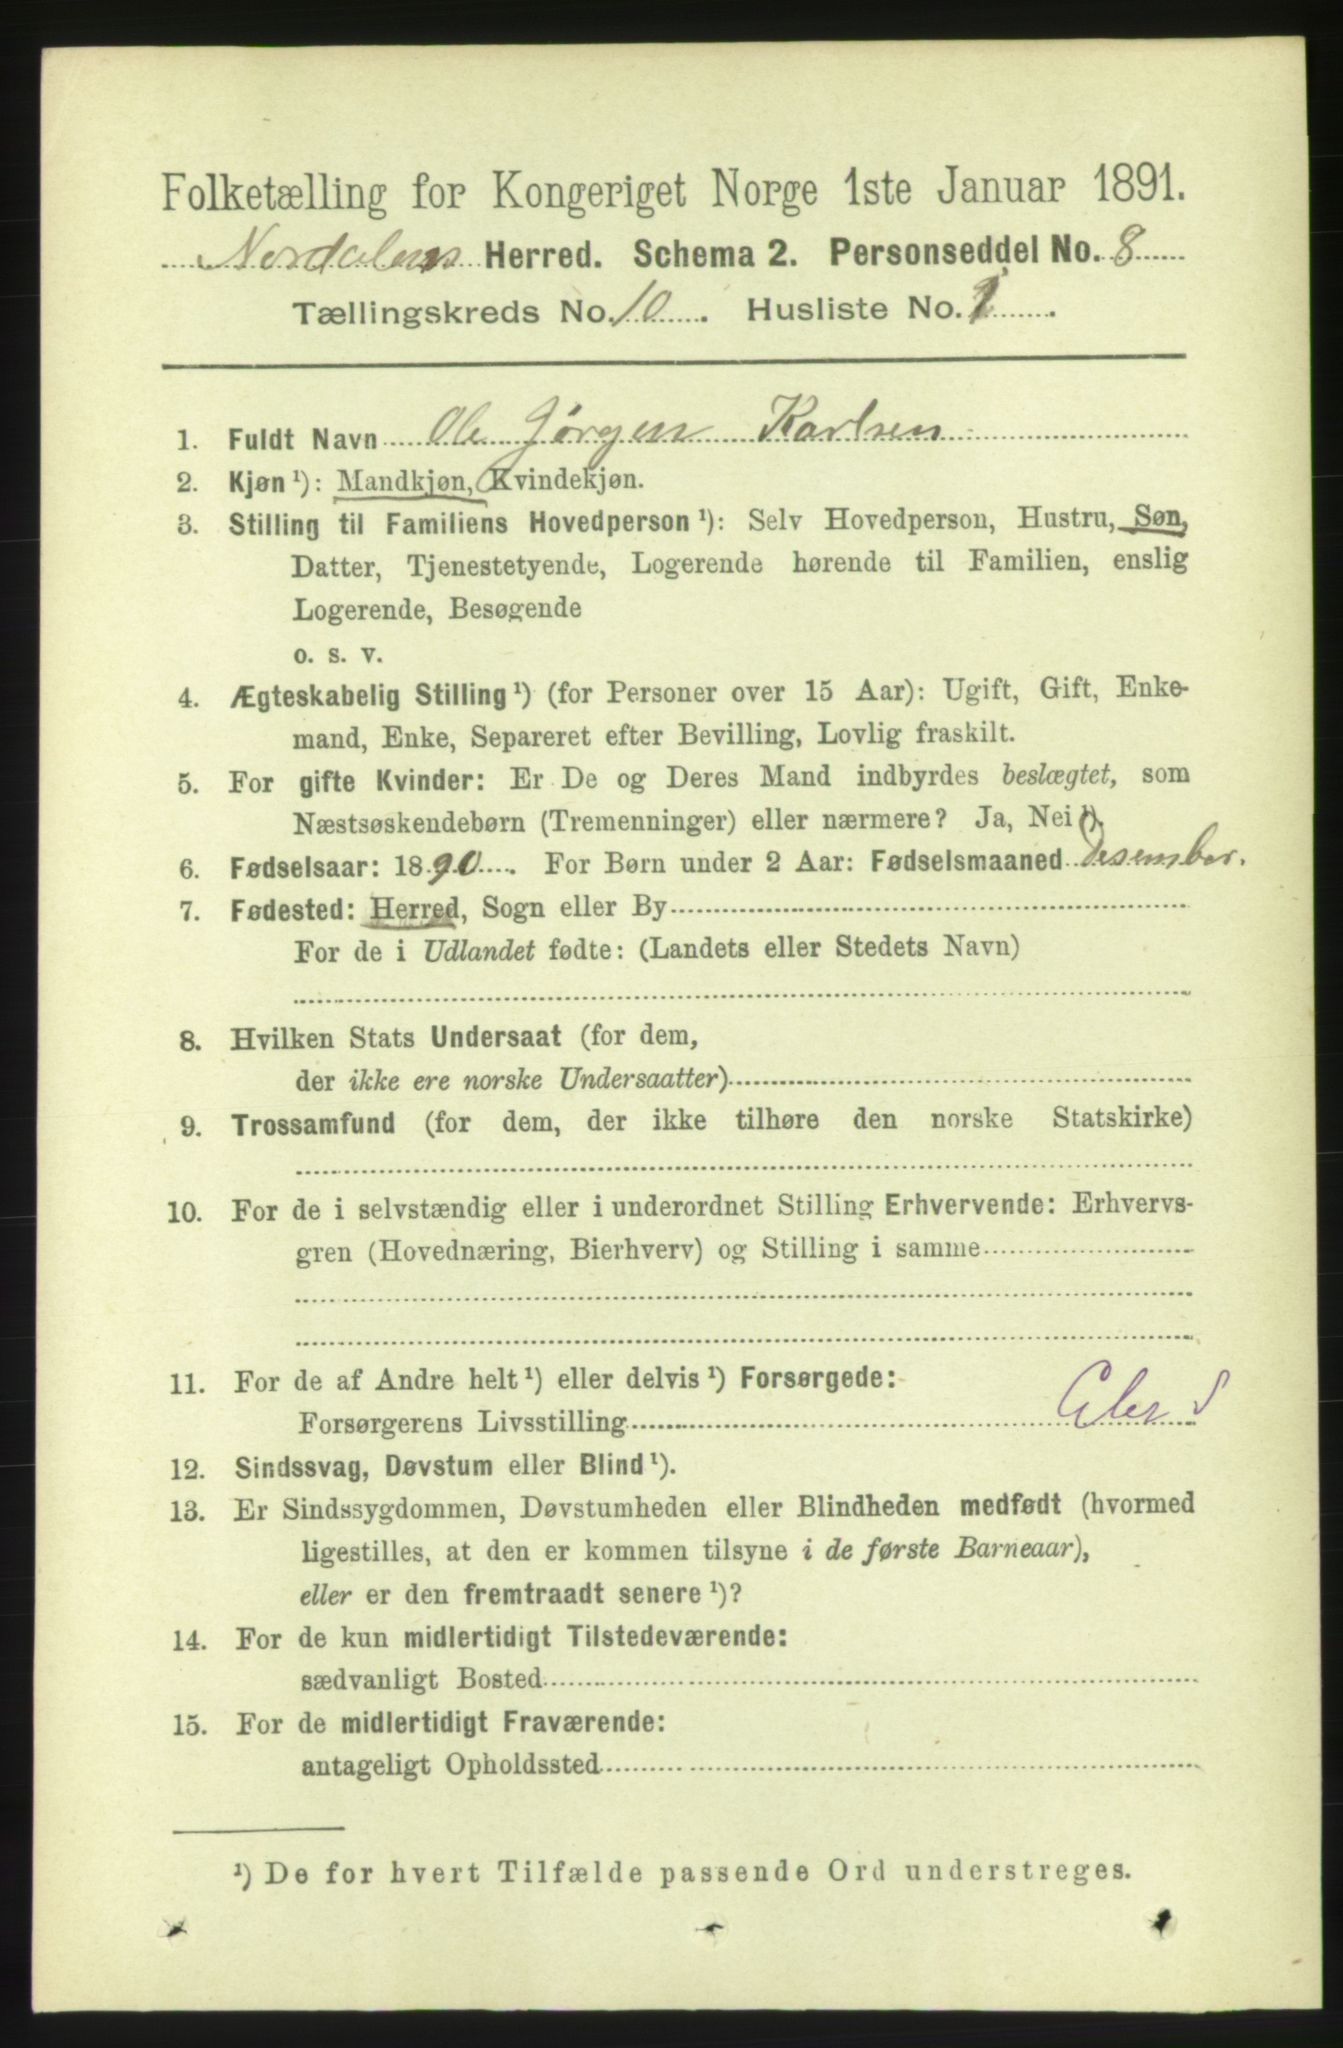 Folketælling for Kongeriget Norge 1ste Januar 1891.
Nordalens Herred. Schema 2. Personseddel No. 8
Tællingskreds No. 10. Husliste No. 1.
1. Fuldt Navn Ole Jørgen Karlsen
2. Kjøn ¹): Mandkjøn, Kvindekjøn.
3. Stilling til Familiens Hovedperson ¹): Selv Hovedperson, Hustru, Søn,
Datter, Tjenestetyende, Logerende hørende til Familien, enslig
Logerende, Besøgende
o. s. v.
4. Ægteskabelig Stilling ¹) (for Personer over 15 Aar): Ugift, Gift, Enke-
mand, Enke, Separeret efter Bevilling, Lovlig fraskilt.
5. For gifte Kvinder: Er De og Deres Mand indbyrdes beslægtet, som
Næstsøskendebørn (Tremenninger) eller nærmere? Ja, Nei ¹).
6. Fødselsaar: 1890. For Børn under 2 Aar: Fødselsmaaned Desember.
7. Fødested: Herred, Sogn eller By
For de i Udlandet fødte: (Landets eller Stedets Navn)
8. Hvilken Stats Undersaat (for dem,
der ikke ere norske Undersaatter)
9. Trossamfund (for dem, der ikke tilhøre den norske Statskirke)
10. For de i selvstændig eller i underordnet Stilling Erhvervende: Erhvervs-
gren (Hovednæring, Bierhverv) og Stilling i samme
11. For de af Andre helt ¹) eller delvis ¹) Forsørgede:
Forsørgerens Livsstilling
12. Sindssvag, Døvstum eller Blind ¹).
13. Er Sindssygdommen, Døvstumheden eller Blindheden medfødt (hvormed
ligestilles, at den er kommen tilsyne i de første Barneaar),
eller er den fremtraadt senere ¹)?
14. For de kun midlertidigt Tilstedeværende:
sædvanligt Bosted
15. For de midlertidigt Fraværende:
antageligt Opholdssted
¹) De for hvert Tilfælde passende Ord understreges.